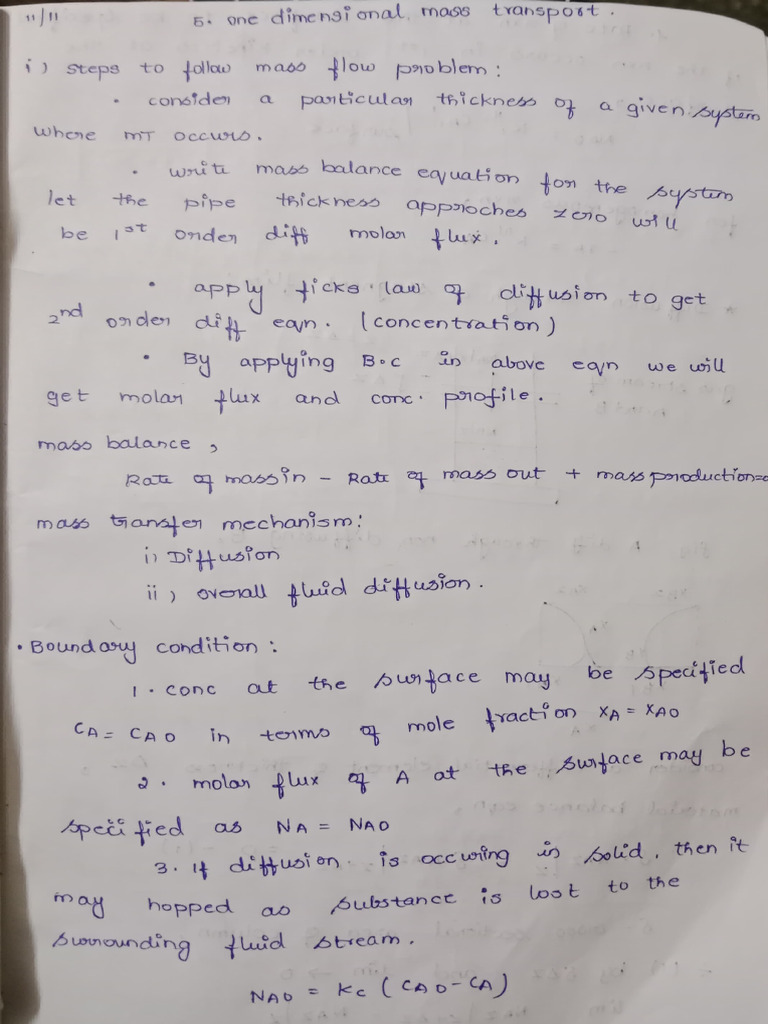 11/11
5. one dimensional mass transport.
i) steps to follow mass flow problem:
• consider a particular thickness of a given system
where MT occurs.
• write mass balance equation for the system
let the pipe thickness approches zero will
be 1st order diff molar flux.
• apply ficks law of diffusion to get
2nd order diff eqn. (concentration)
• By applying B.C in above eqn we will
get molar flux and conc. profile.
mass balance,
Rate of mass in - Rate of mass out + mass production=0
mass transfer mechanism:
i) Diffusion
ii) overall fluid diffusion.
• Boundary condition:
1. conc at the surface may be specified
CA = CA0 in terms of mole fraction XA = XA0
2. molar flux of A at the surface may be
specified as NA = NA0
3. If diffusion is occuring in solid, then it
may hopped as substance is lost to the
surrounding fluid stream.
NA0 = Kc (CA0 - CA)